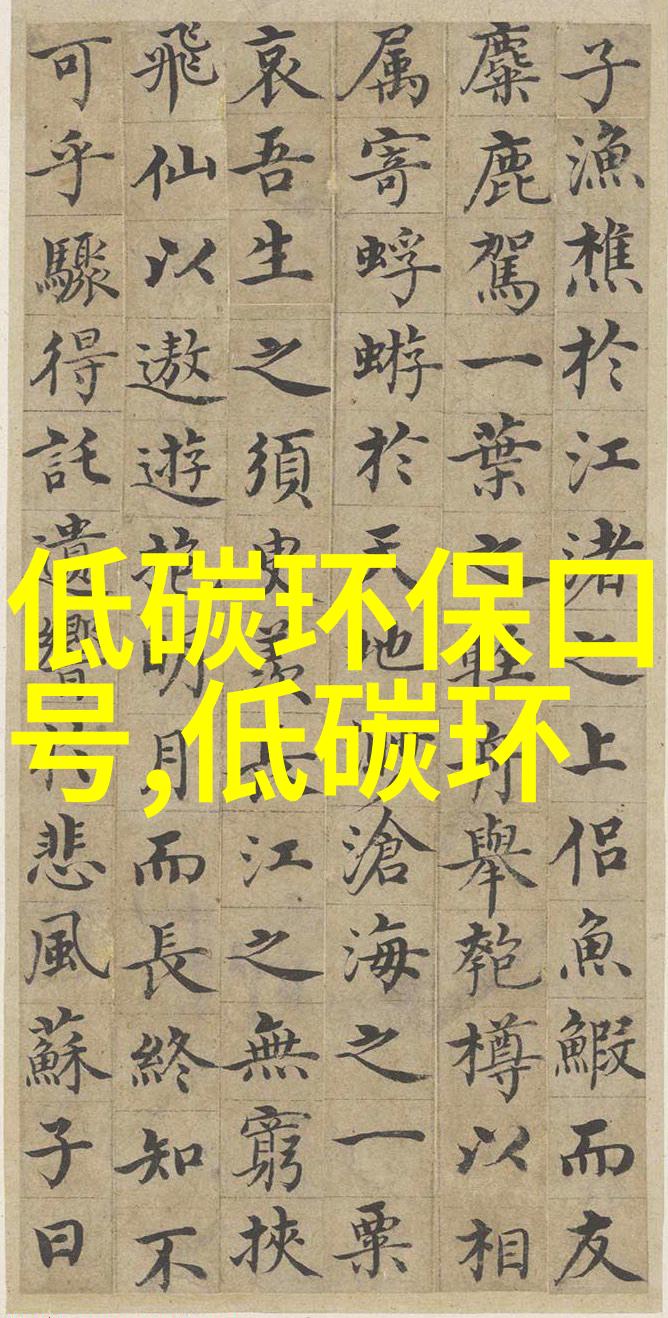 子漁樵於江渚之上侶魚鰕而友
麋鹿駕一葉之輕舟舉匏樽以相
属寄蜉蝣於天地渺滄海之一粟
哀吾生之須臾羨長江之無窮挾
飛仙以遨遊抱明月而長終知不
可乎驟得託遺響於悲風蘇子曰
低碳环保口
号,低碳环